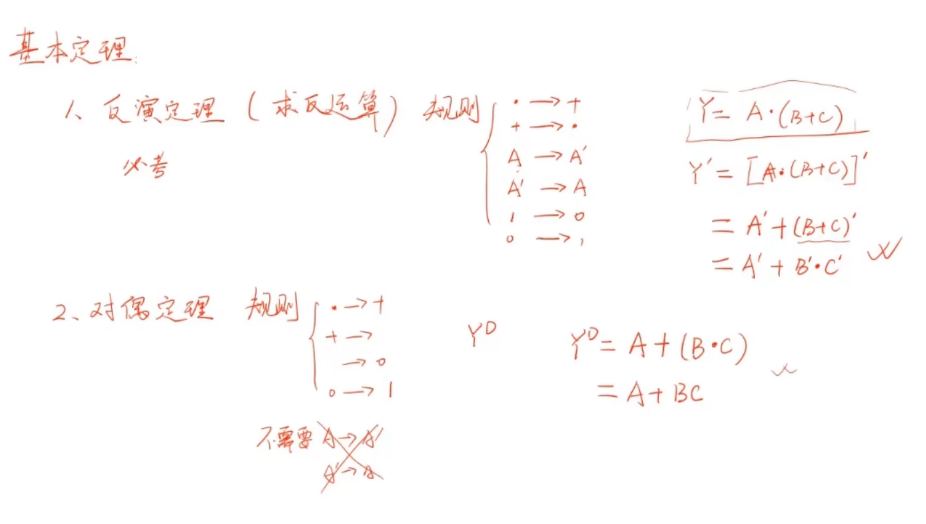 基本定理:
1、反演定理 (求反运算) 规则
· → +
+ → ·
A → A'
A' → A
1 → 0
0 → 1
必考
Y = A·(B+C)
Y' = [A·(B+C)]'
= A' + (B+C)'
= A' + B'·C'
2、对偶定理 规则
· → +
+ →
→ 0
0 → 1
不需要 A → A'
A' → A
Y^D
Y^D = A + (B·C)
= A + BC